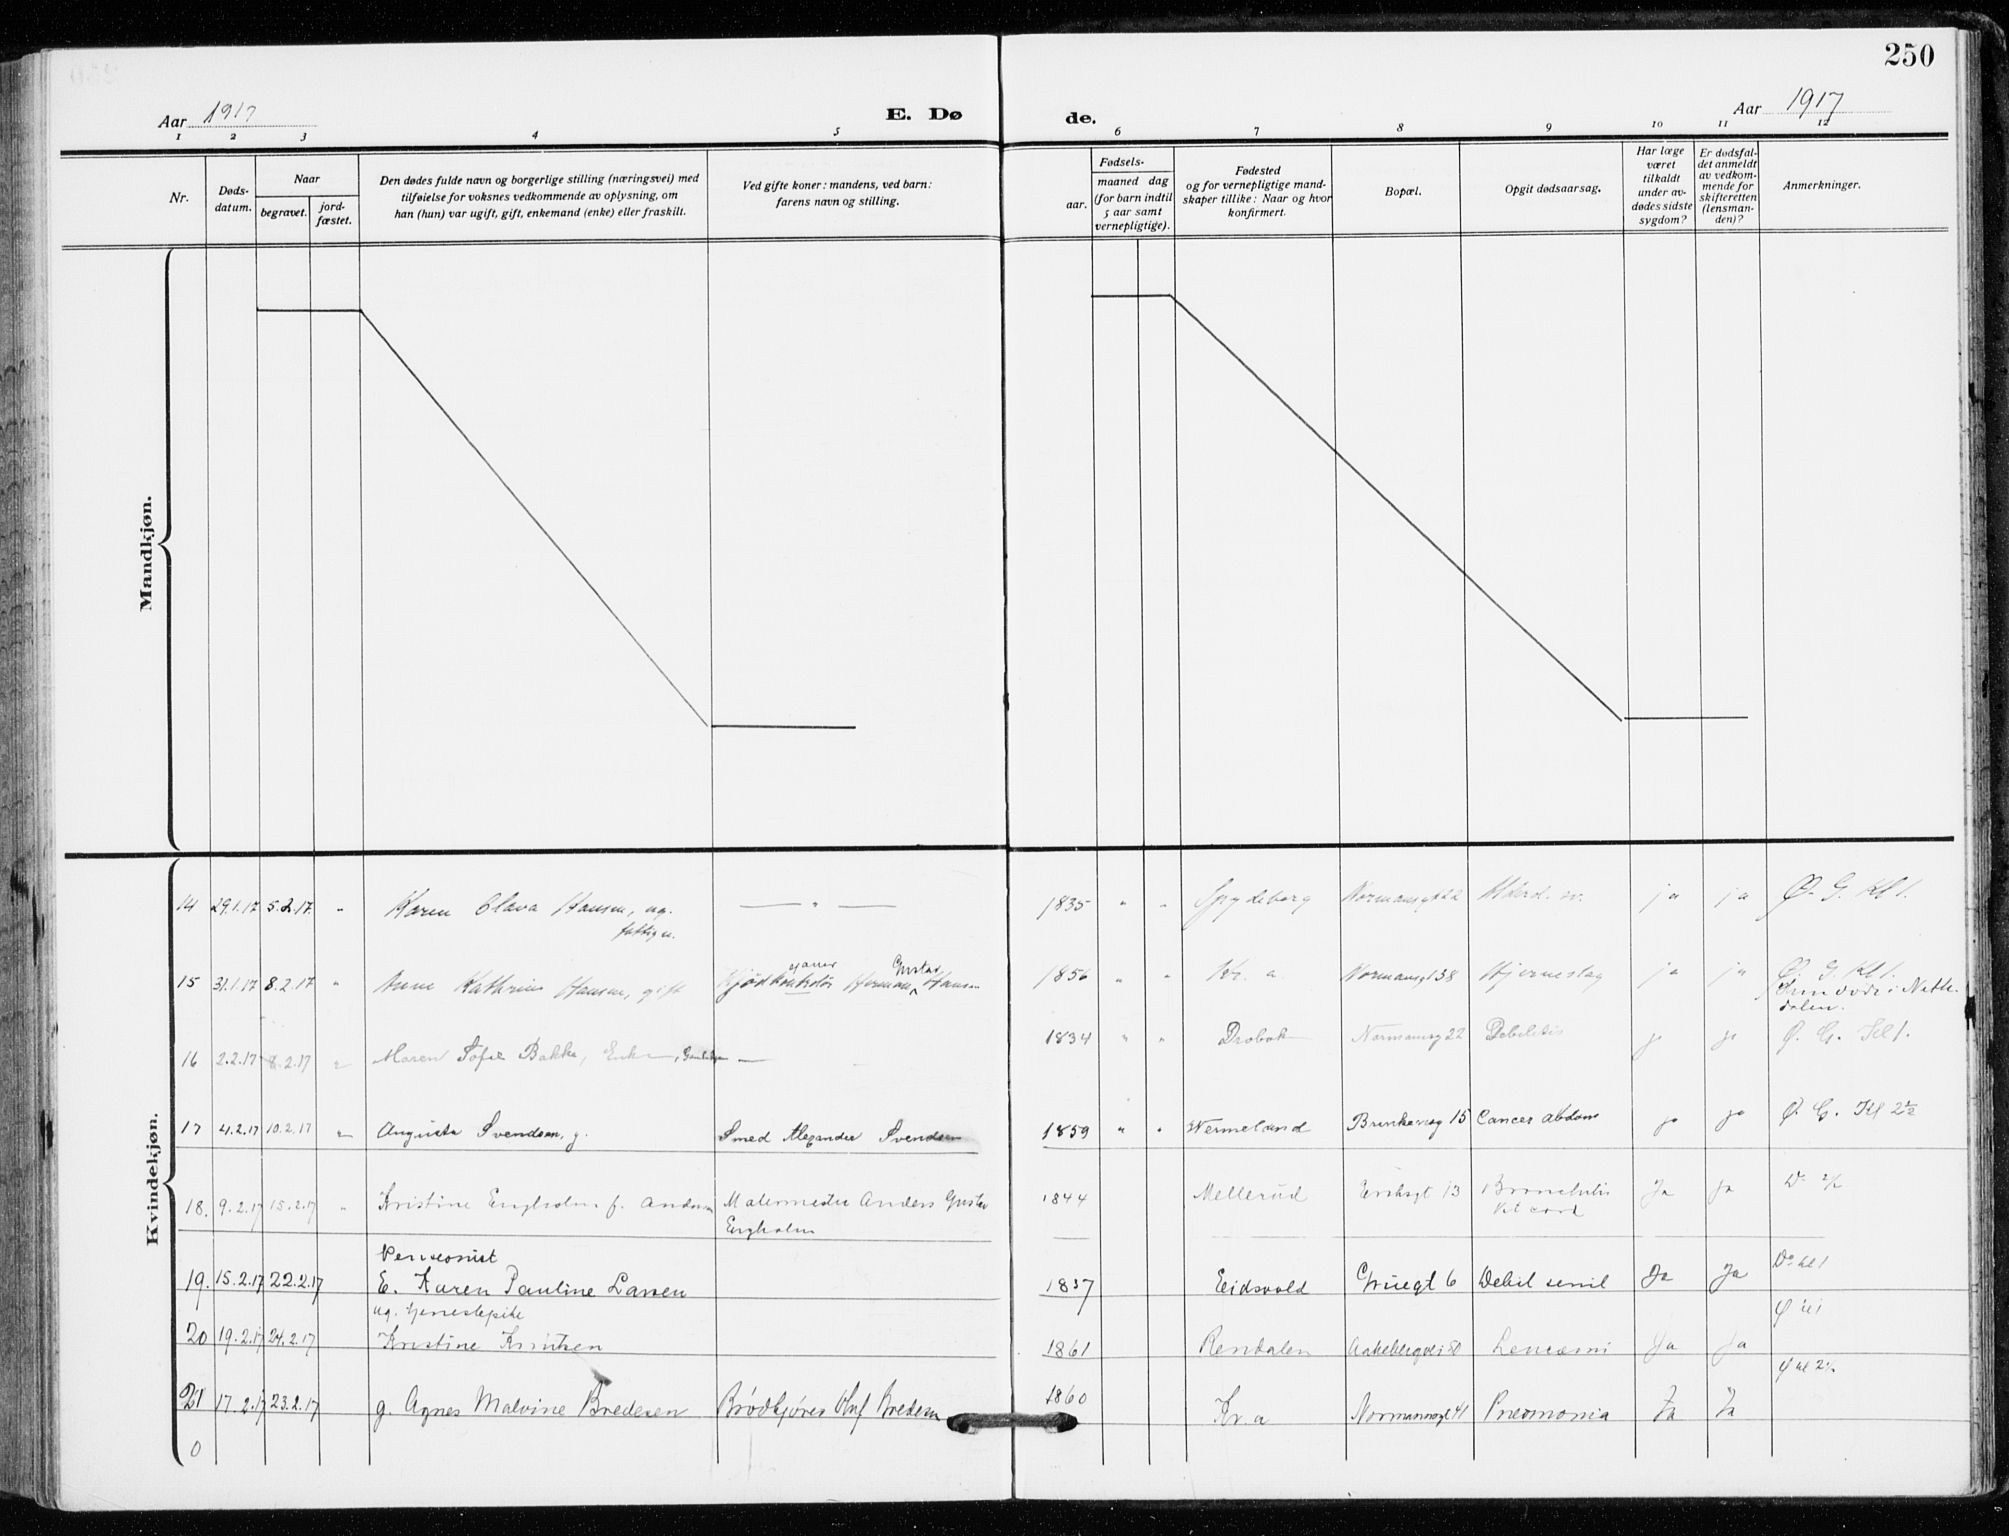 250
Aar 1917
E. Dø
de.
Aar 1917
1 2 3 4 5 6 7 8 9 10 11 12
Nr.
Døds-
datum.
Naar
begravet.
jord-
fæstet.
Den dødes fulde navn og borgerlige stilling (næringsvei) med
tilføielse for voksnes vedkommende av oplysning, om
han (hun) var ugift, gift, enkemand (enke) eller fraskilt.
Ved gifte koner: mandens, ved barn:
farens navn og stilling.
Fødsels-
aar.
maaned dag
(for barn indtil
5 aar samt
vernepligtige).
Fødested
og for vernepligtige mand-
skaper tillike: Naar og hvor
konfirmert.
Bopæl.
Opgit dødsaarsag.
Har læge
været
tilkaldt
under av-
dødes sidste
sygdom?
Er dødsfal-
det anmeldt
av vedkom-
mende for
skifteretten
(lensman-
den)?
Anmerkninger.
Mandkjøn.
Kvindekjøn.
14 29.1.17 5.2.17 " Karen Olava Hansen, ug. — " — 1835 " " Spydeberg Normansgt 22 ja ja Ø. G. Kl 1.
fattigu.
15 31.1.17 8.2.17 " Anne Kathrine Hansen, gift Kjødkontrolør Herman Gustav Hansen 1856 " " Kr. a. Normansgt 38 Hjerneslag ja ja Ø. G. Kl 1.
dalen.
16 2.2.17 8.2.17 " Maren Sofie Bakke, Enke, — 1834 " " Drøbak Normansg 22 Debilitis ja ja Ø. G. Kl 1.
17 4.2.17 10.2.17 " Augusta Svendsen, g. Smed Alexander Svendsen 1859 " " Wermeland Brinkensg 15 Cancer abdom ja ja Ø. G. Kl 2½
18. 9.2.17 15.2.17 " Kristine Engholm f. Andersen Malermester Anders Gustav 1844 Mellerud Eriksgt 13 Bronchitis Ja ja Do 2½
Engholm Vit cord
Pensionist
19. 15.2.17 22.2.17 E. Karen Pauline Larsen 1837 Eidsvold Grüegt 6 Debil senil Ja Ja Do kl 1
ug. tjenestepike
20 19.2.17 24.2.17 Kristine Knutsen 1861 Rendalen Aakebergvei 50 Leucæmi Ja Ja Ø kl 1
21 17.2.17 23.2.17 g. Agnes Malvine Bredesen Brødkjører Olaf Bredesen 1860 Kr. a Normannsgt 41 Pneomonia Ja Ja Ø kl 2½
0